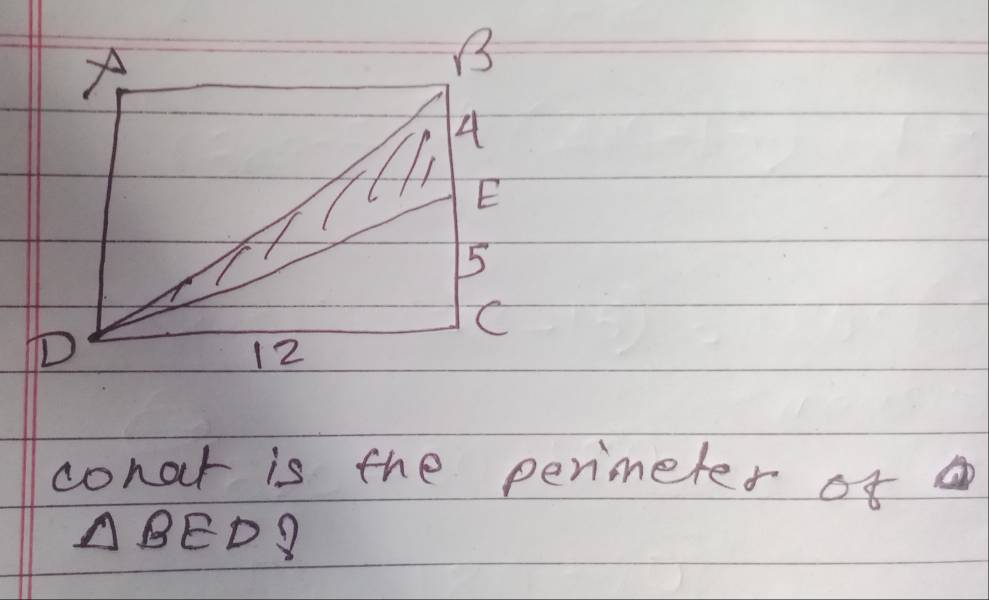 A B
4
E
5
D C
12
what is the perimeter of
Δ BED?